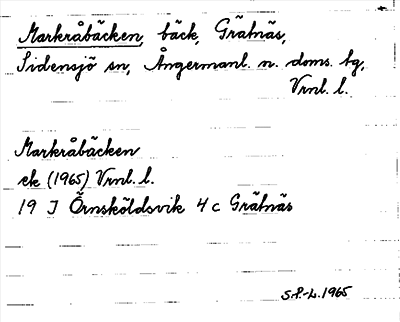 Markråbäcken, bäck, Grätnäs,
Sidensjö sn, Ångermanl. n. doms. tg,
Vrnl. l.
Markråbäcken
ek (1965) Vrnl. l.
19 J Örnsköldsvik 4 c Grätnäs
S.P.-L. 1965